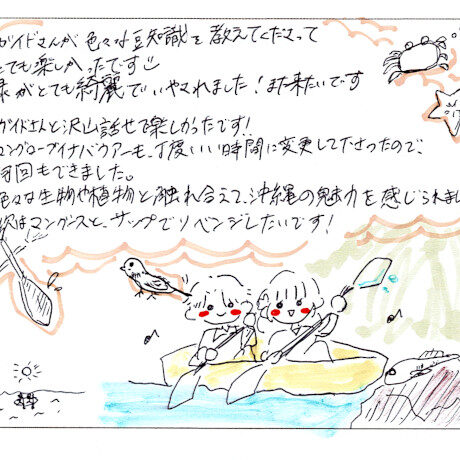 ガイドさんが色々な豆知識を教えてくださって
とても楽しかったです
緑がとても綺麗でいやされました！また来たいです
ガイドさんと沢山話せて楽しかったです！
マングローブイナバウアーも、丁度いい時間に変更して下さったので、
何回もできました。
色々な生物や植物と触れ合えて、沖縄の魅力を感じられまし
次はマングースと、サップでリベンジしたいです！